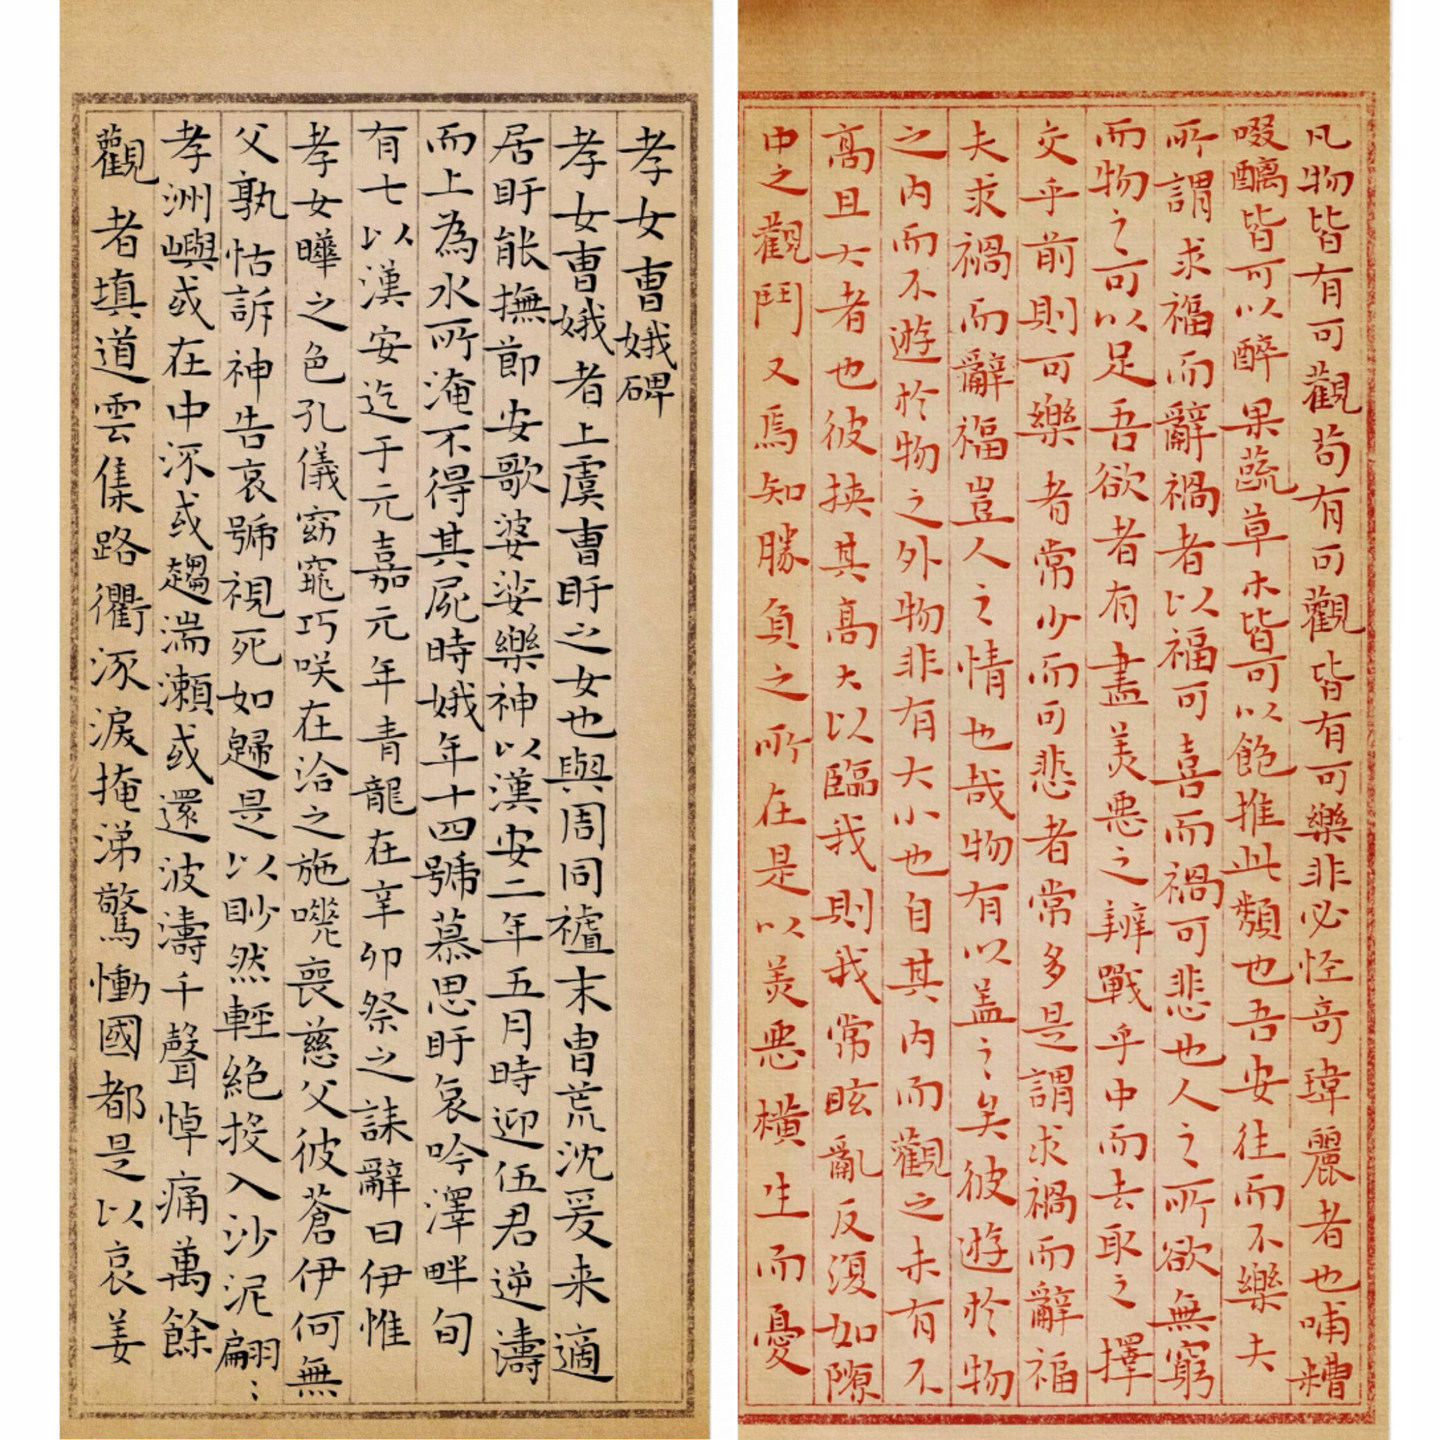 孝女曹娥碑
孝女曹娥者上虞曹盱之女也與周同禮末胄荒沈爰来適
居盱能撫節安歌婆娑樂神以漢安二年五月時迎伍君逆濤
而上為水所淹不得其屍時娥年十四號慕思盱哀吟澤畔旬
有七以漢安迄于元嘉元年青龍在辛卯祭之誄辭曰伊惟
孝女曄之色孔儀窈窕巧咲在洽之施嘰喪慈父彼蒼伊何無
父孰怙訴神告哀號視死如歸是以眇然輕絕投入沙泥翩:
孝洲嶼或在中沠或趨湍瀨或還波濤千聲悼痛萬餘
觀者填道雲集路衢沠淚掩涕驚慟國都是以哀姜
凡物皆有可觀苟有可觀皆有可樂非必怪奇瑋麗者也哺糟
啜醨皆可以醉果蔬草木皆可以飽推此類也吾安往而不樂夫
所謂求福而辭禍者以福可喜而禍可悲也人之所欲無窮
而物之可以足吾欲者有盡美惡之辨戰乎中而去取之擇
交乎前則可樂者常少而可悲者常多是謂求禍而辭福
夫求禍而辭福豈人之情也哉物有以蓋之矣彼遊於物
之内而不遊於物之外物非有大小也自其内而觀之未有不
高且大者也彼挾其高大以臨我則我常眩亂反復如隙
中之觀鬥又焉知勝負之所在是以美惡橫生而憂